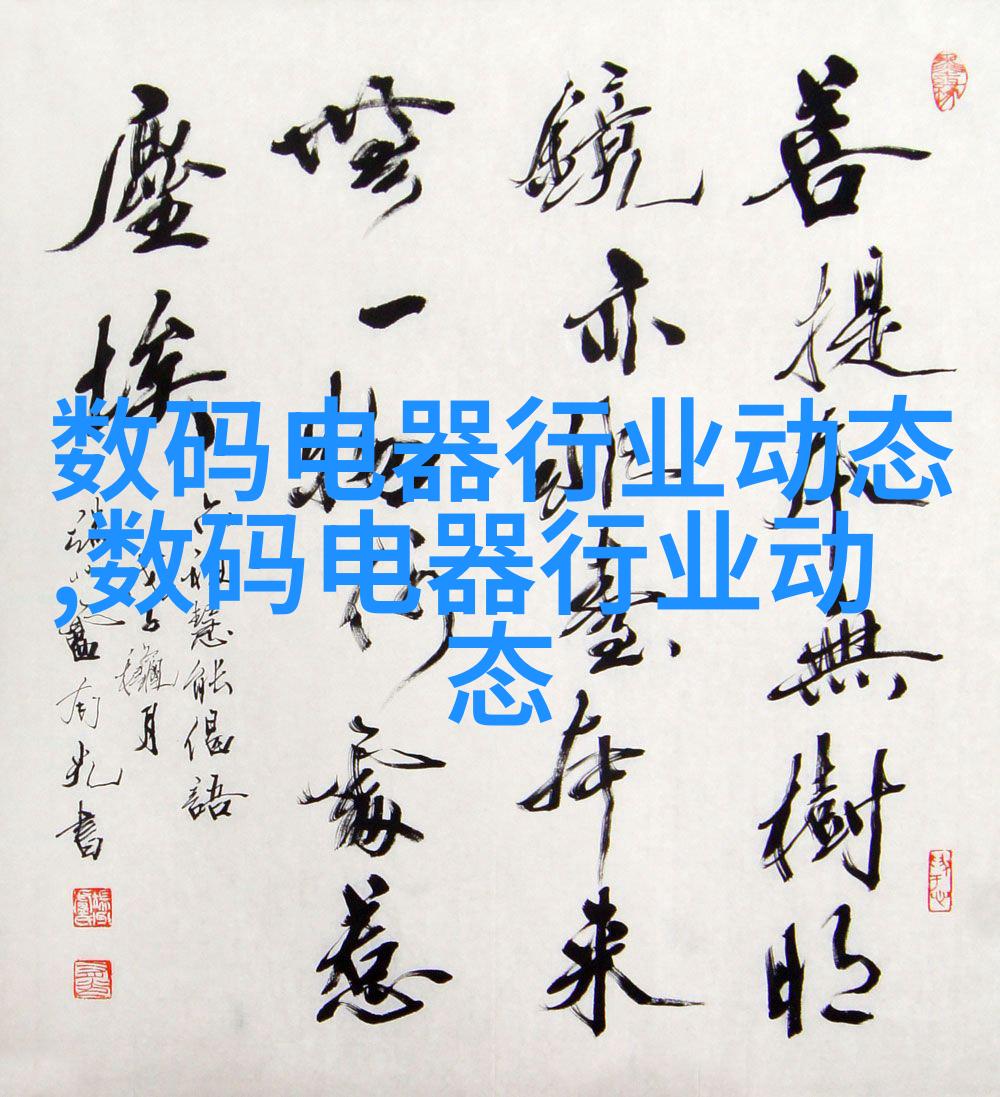 菩提本無樹明
鏡亦非臺本来
無一物何處惹
塵埃
六祖慧能偈語
数码电器行业动态
,数码电器行业动
态